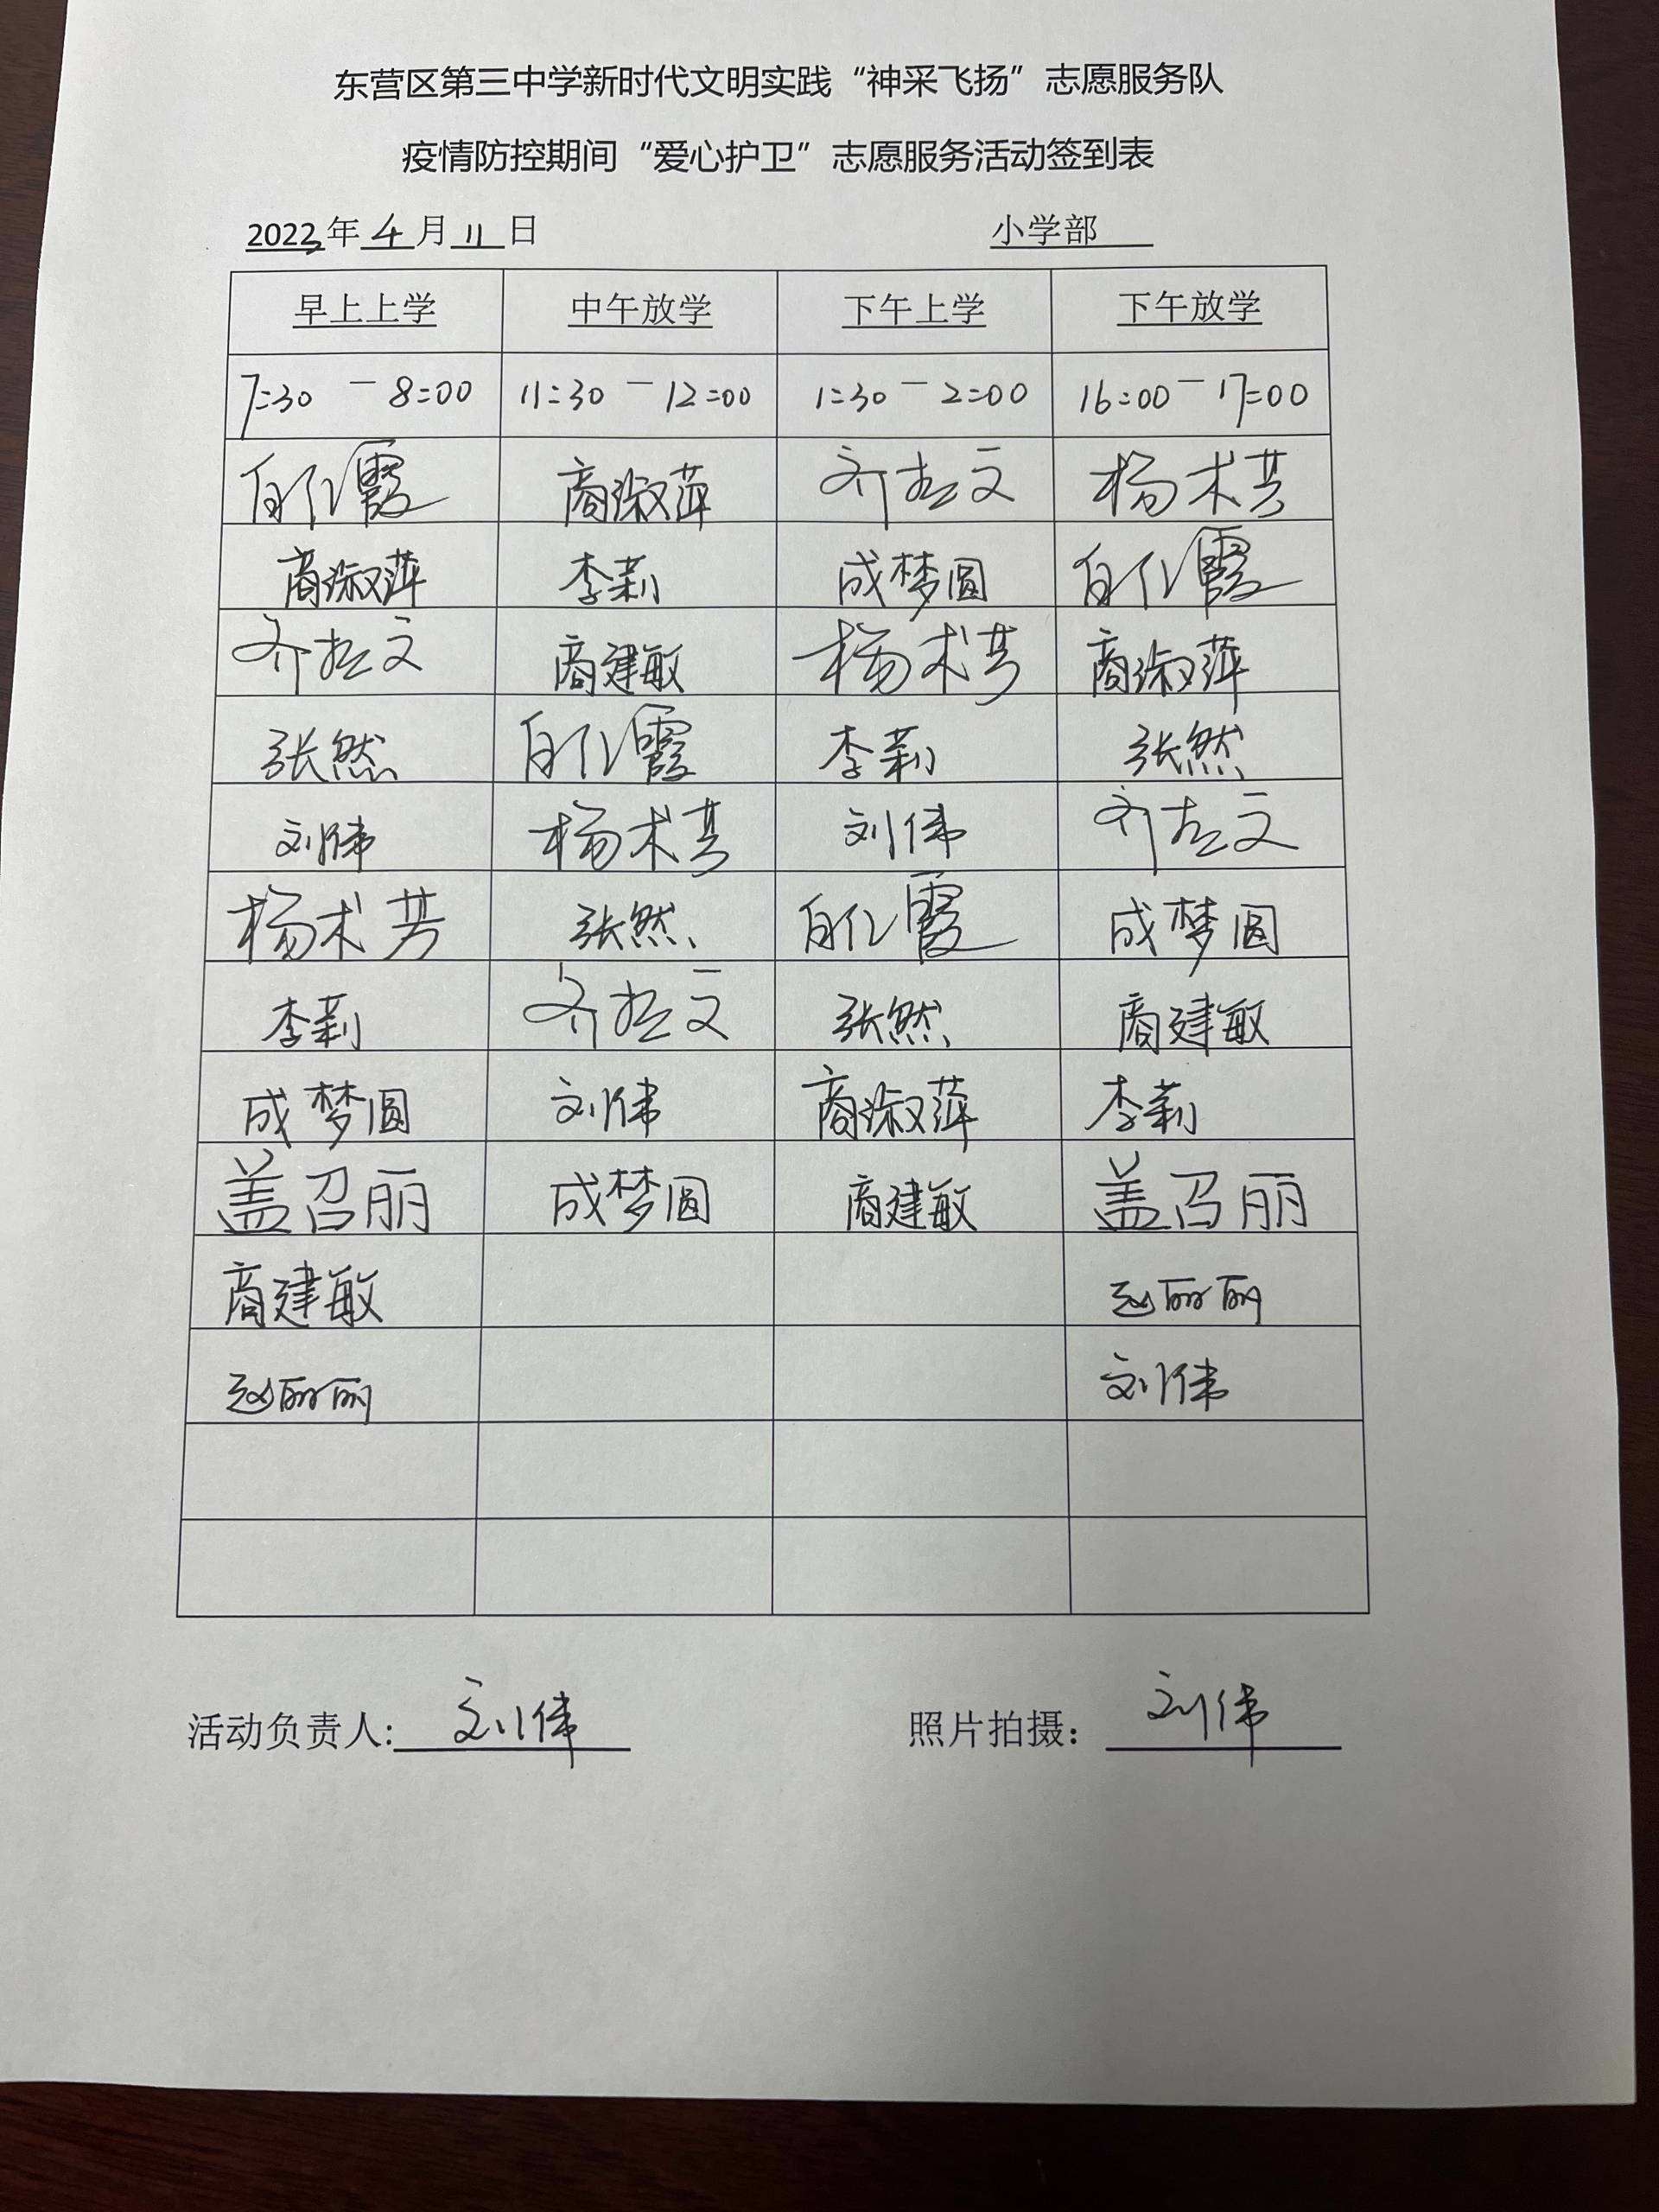 东营区第三中学新时代文明实践“神采飞扬”志愿服务队
疫情防控期间“爱心护卫”志愿服务活动签到表
2022年 4 月 11 日 小学部
早上上学 中午放学 下午上学 下午放学
7:30 — 8:00 11:30 — 12:00 1:30 — 2:00 16:00 — 17:00
商淑萍 杨术芳
商淑萍 李莉 成梦圆
商建敏 杨术芳 商淑萍
张然 李莉 张然
刘伟 杨术芳 刘伟
杨术芳 张然 成梦圆
李莉 张然 商建敏
成梦圆 刘伟 商淑萍 李莉
盖召丽 成梦圆 商建敏 盖召丽
商建敏 赵丽丽
赵丽丽 刘伟
活动负责人: 刘伟 照片拍摄： 刘伟